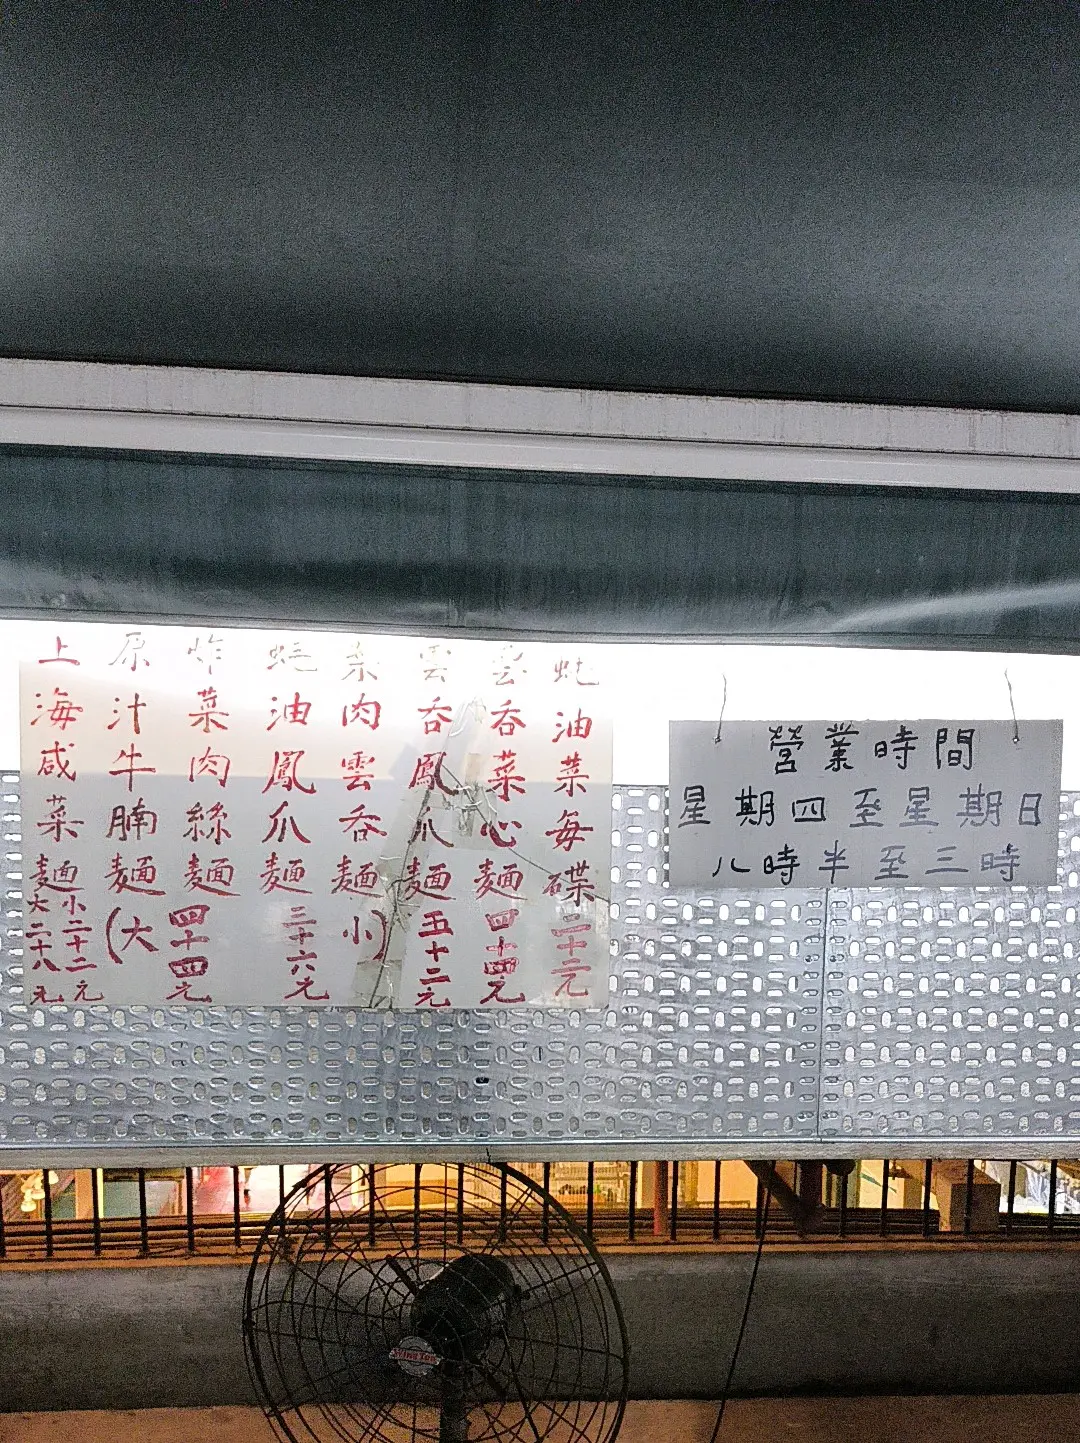 蚝油菜每碟二十二元
雲吞菜心麵四十四元
雲吞鳳爪麵五十二元
菜肉雲吞麵小)
蚝油鳳爪麵三十六元
炸菜肉絲麵四十四元
原汁牛腩麵(大
上海咸菜麵
小二十二元
大二十八元
營業時間
星期四至星期日
八時半至三時